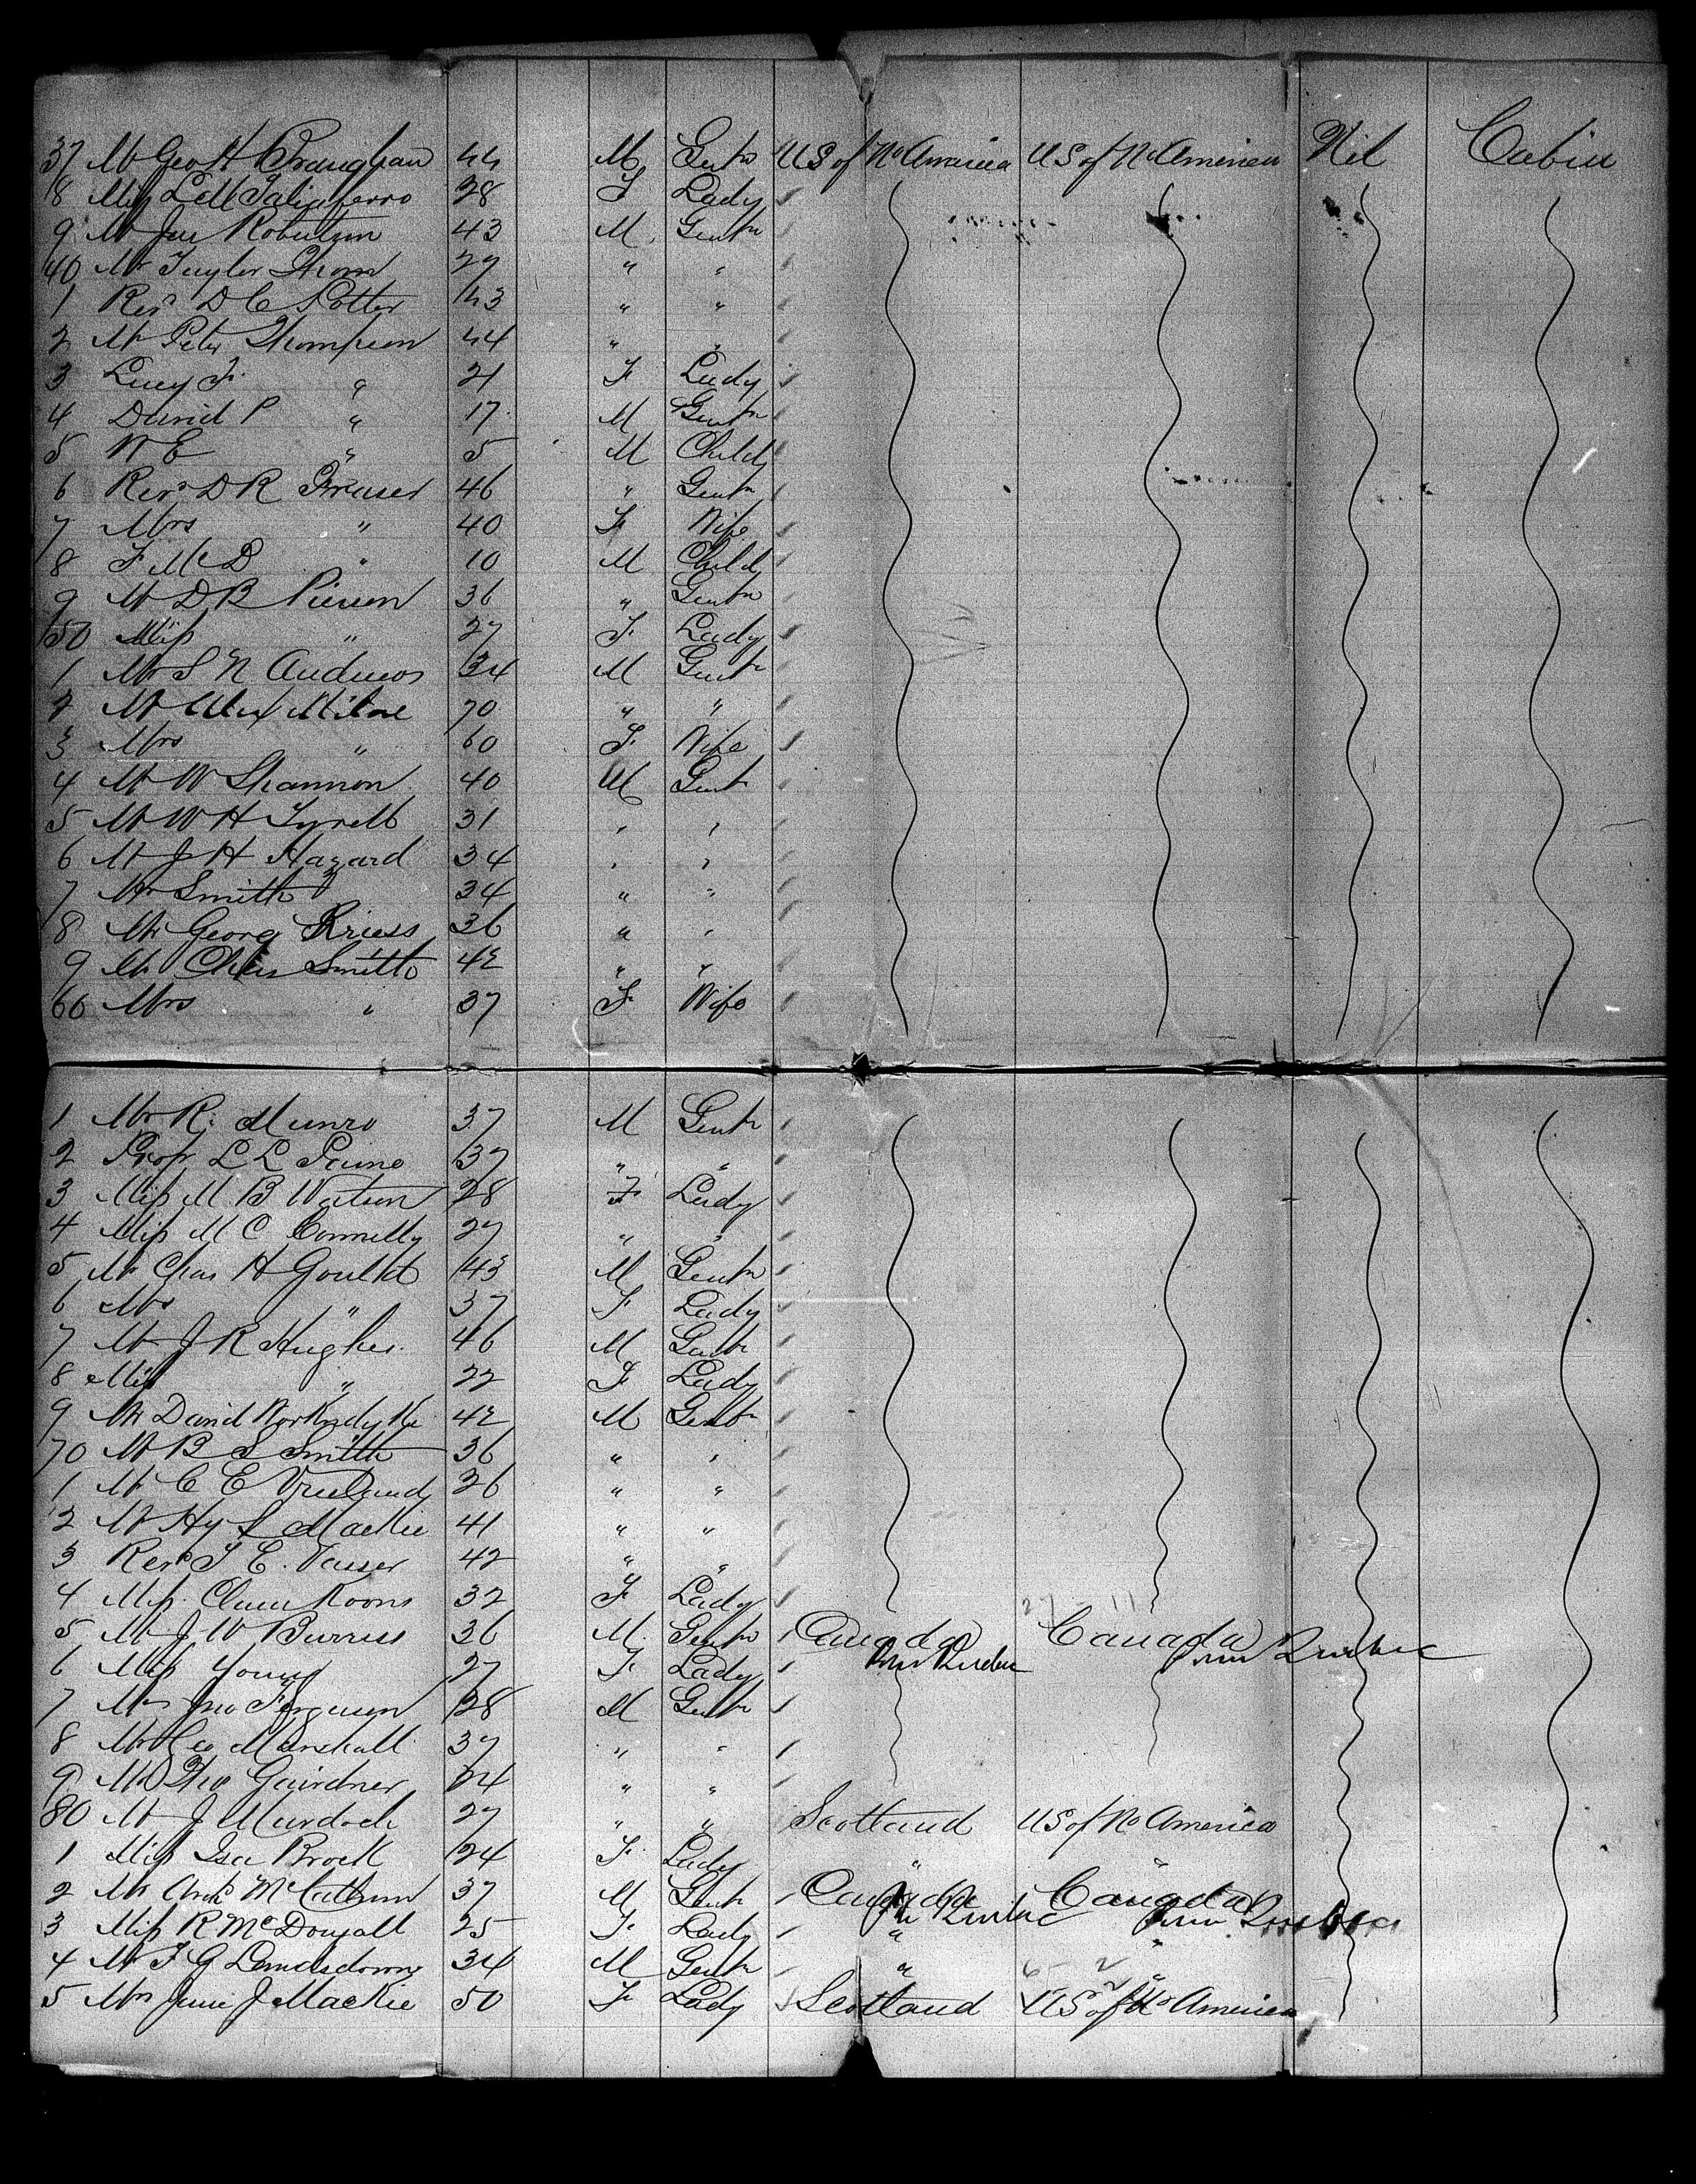 37 Mr Geo H 44 M Gentn US of No America US of No America Nil Cabin
8 Miss L M Taliaferro 28 F Lady
9 Mr Jas Robertson 43 M Gentn
40 Mr Taylor Strom 27 " "
1 Revd D C Potter 43 " "
2 Mr Peter Thompson 44 " "
3 Lucy F. " 21 F Lady
4 David P " 17 M Gentn
5 W E " 5 M Child
6 Revd D R Fraser 46 " Gentn
7 Mrs " 40 F Wife
8 F McD " 10 M Child
9 Mr D B Pierson 36 " Gentn
50 Miss " 27 F Lady
1 Mr S N Andrews 34 M Gent
2 Mr Alex Milne 70 " "
3 Mrs " 60 F Wife
4 Mr W Shannon 40 M Gent
5 Mr W H Tyrell 31 " "
6 Mr J H Hazard 34 " "
7 Mr Smith 34 " "
8 Mr Georg Kriess 36 " "
9 Mr Chas Smith 42 " "
60 Mrs " 37 F Wife
1 Mr R. Munro 37 M Gentn
2 Prof L L Paine 37 " "
3 Miss M B Watson 28 F Lady
4 Miss M C Connelly 27 " "
5 Mr Chas H Gould 43 M Gentn
6 Mrs " 37 F Lady
7 Mr J R Hughes 46 M Gentn
8 Miss " 22 F Lady
9 Mr David 42 M Gentn
70 Mr B S Smith 36 " "
1 Mr C E Vreeland 26 " "
2 Mr Hy S Mackie 41 " "
3 Revd T E. Vasser 42 " "
4 Miss Clara Koons 32 F Lady
5 Mr J W Burress 36 M Gentn Canada Canada
6 Miss Young 27 F Lady from Quebec from Quebec
7 Mr Jno Ferguson 28 M Gentn
8 Mr Geo Marshall 37 " "
9 Mr Gairdner 24 " "
80 Mr J Murdoch 27 " " Scotland US of No America
1 Miss Isa Brock 24 F Lady " "
2 Mr Archd McCallum 37 M Gent Canada Canada
3 Miss R McDougall 25 F Lady Quebec from Quebec
4 Mr F G Lansdowne 34 M Gentn " "
5 Mrs J Mackie 50 F Lady Scotland US of No America